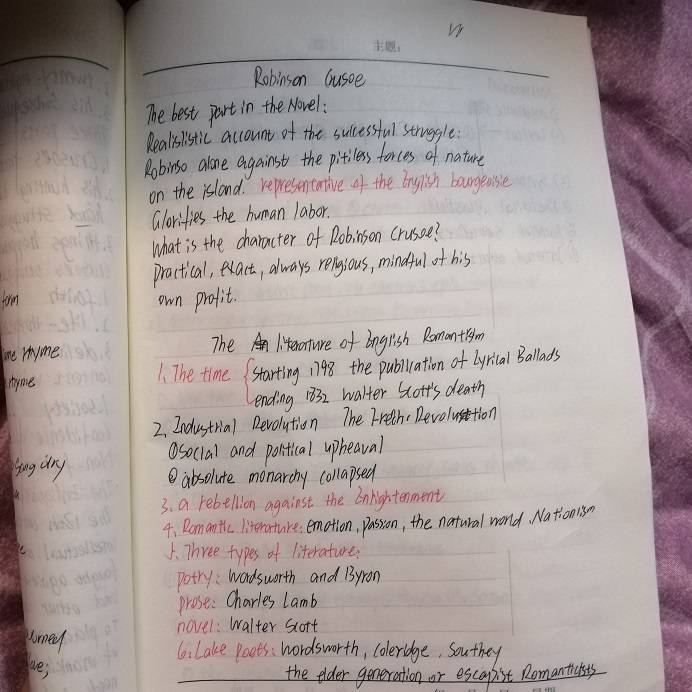 主题:
Robinson Crusoe
The best part in the Novel:
Realislistic account of the successful struggle:
Robinso alone against the pitiless forces of nature
on the island. representative of the English bourgeoisie
Glorifies the human labor.
What is the character of Robinson Crusoe?
Practical, exact, always religious, mindful of his
own profit.
The literature of English Romantism
1. The time starting 1798 the publication of Lyrical Ballads
ending 1832 Walter Scott's death
2. Industrial Revolution The French Revolution
①social and political upheaval
② absolute monarchy collapsed
3. a rebellion against the Enlightenment
4. Romantic literature: emotion, passion, the natural world, Nationism
5. Three types of literature:
potry: Wordsworth and Byron
prose: Charles Lamb
novel: Walter Scott
6. Lake Poets: Wordsworth, Coleridge, Southey
the elder generation or escapist Romanticists
form
rhyme
rhyme